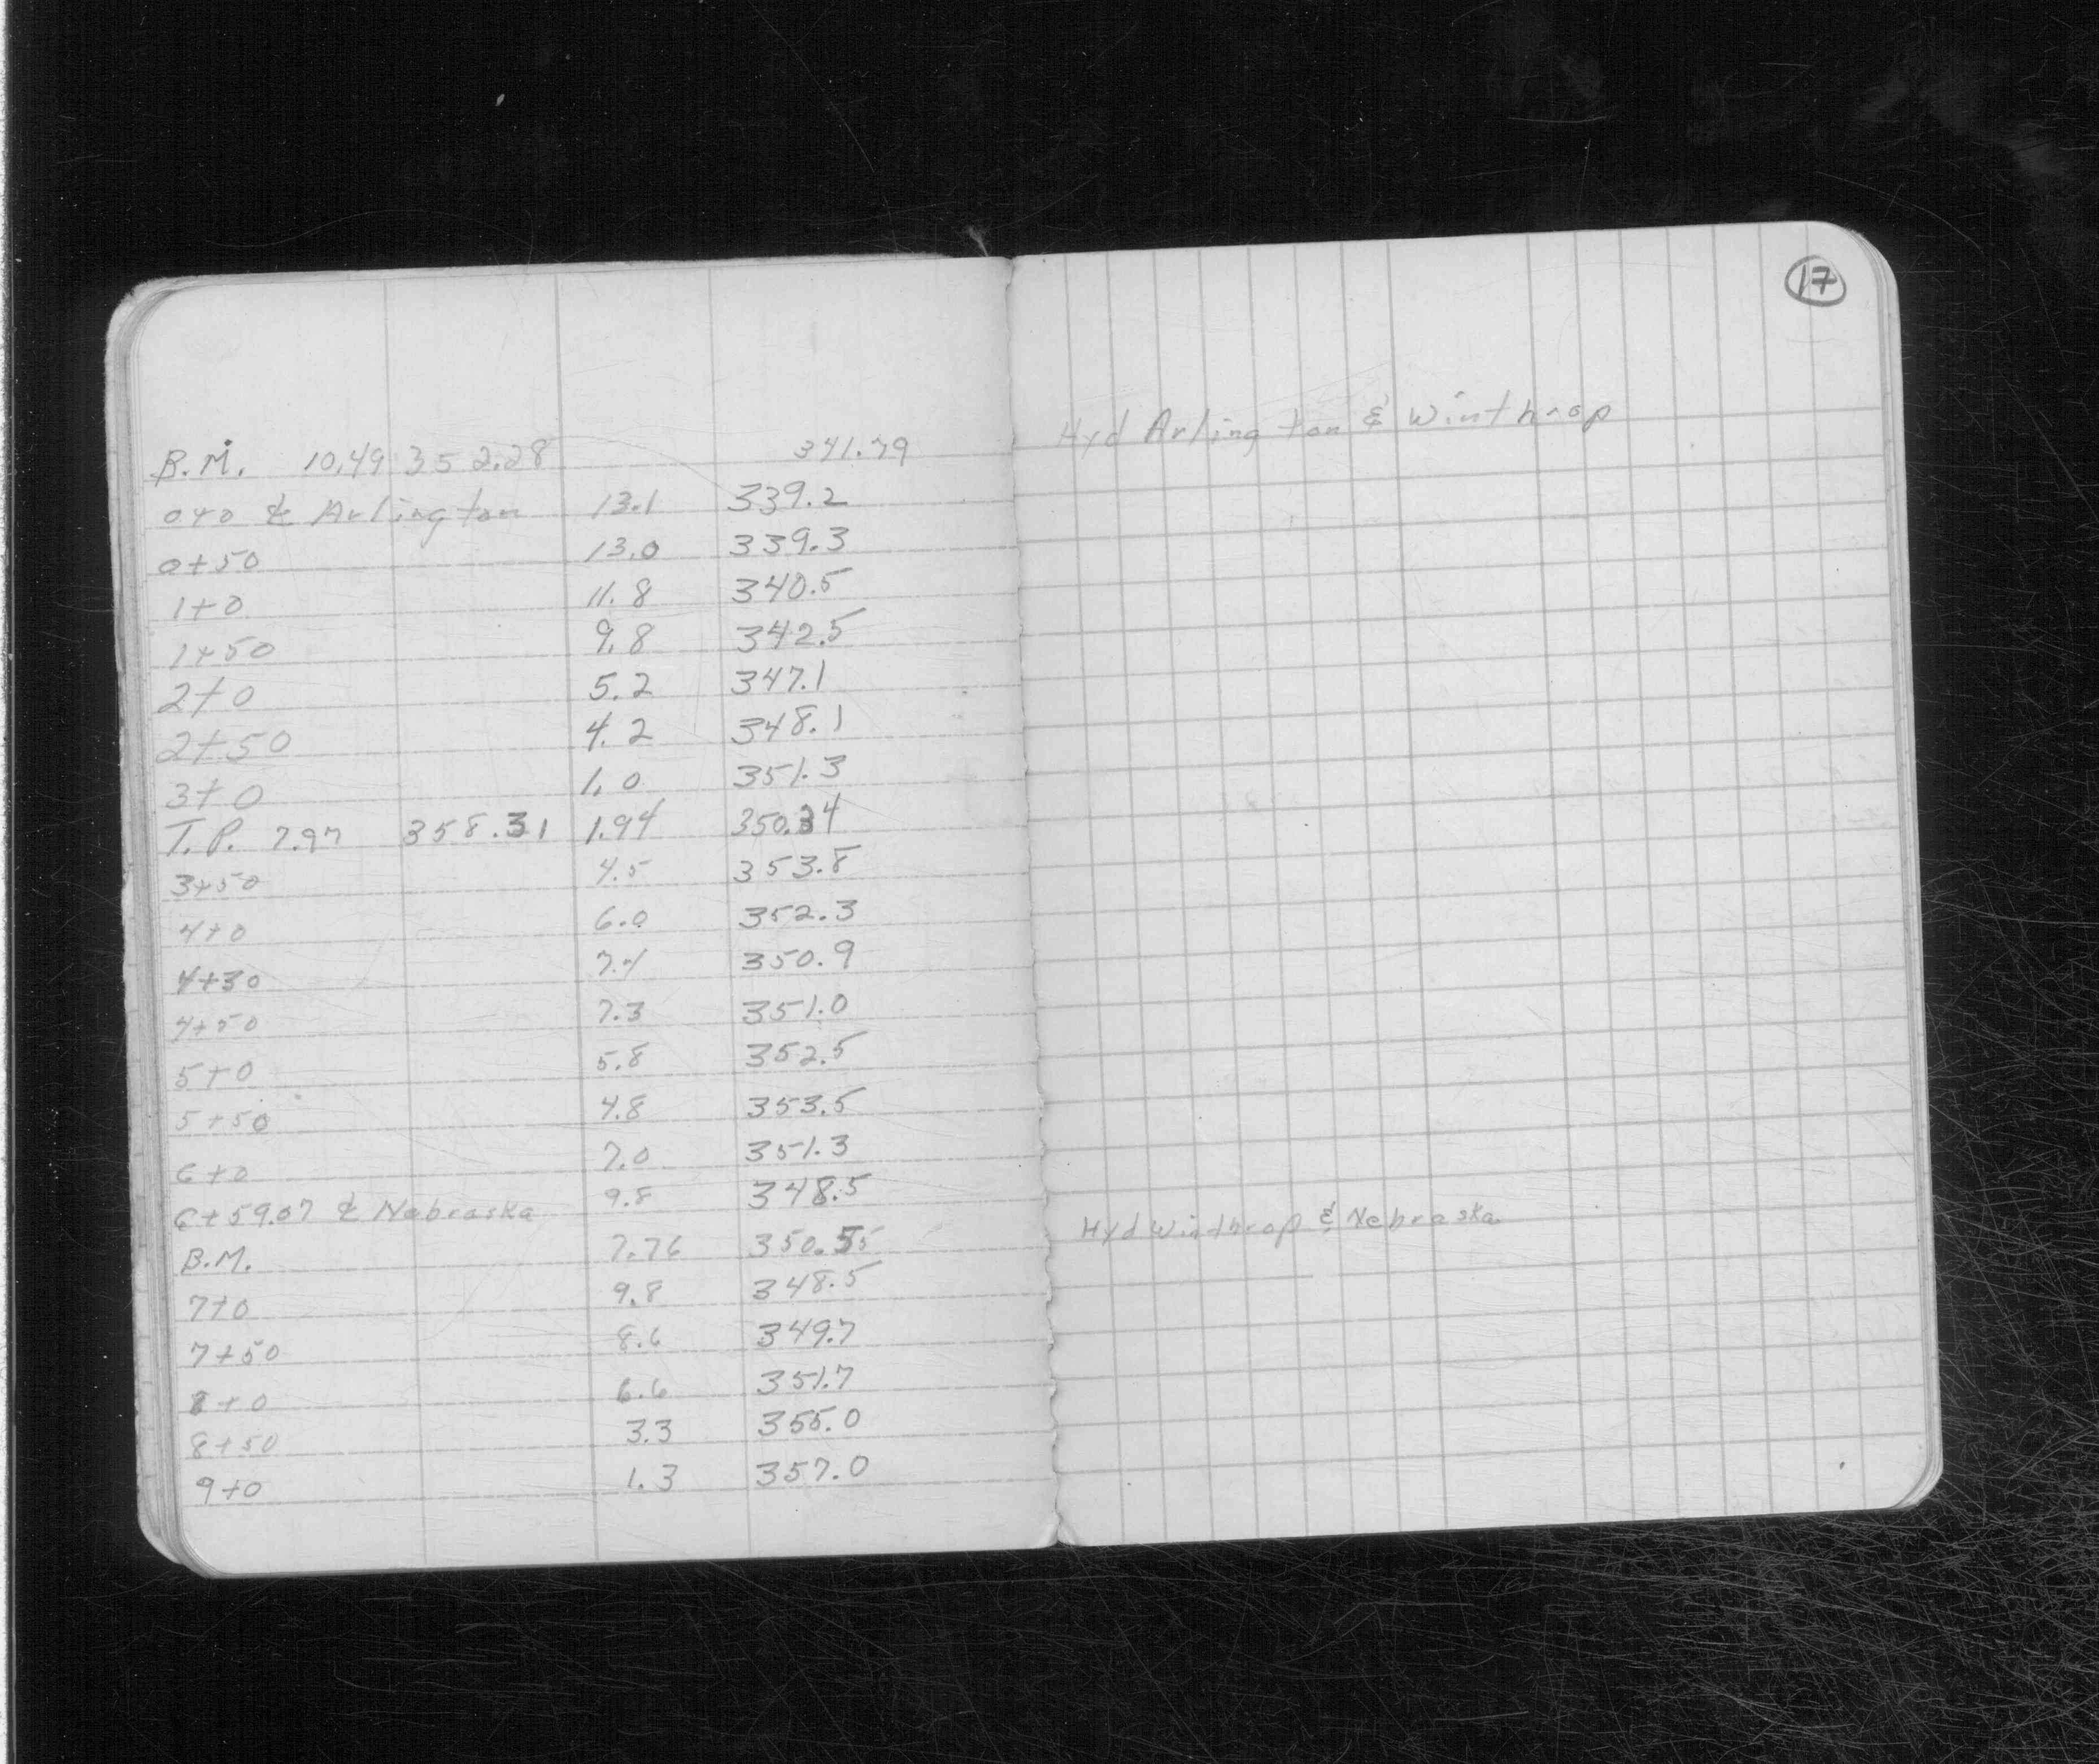 17
B.M. 10.49 352.28 341.79 Hyd Arlington & Winthrop
0+0 ℄ Arlington 13.1 339.2
0+50 13.0 339.3
1+0 11.8 340.5
1+50 9.8 342.5
2+0 5.2 347.1
2+50 4.2 348.1
3+0 1.0 351.3
T.P. 7.97 358.31 1.94 350.34
3+50 4.5 353.8
4+0 6.0 352.3
4+30 7.4 350.9
4+50 7.3 351.0
5+0 5.8 352.5
5+50 4.8 353.5
6+0 7.0 351.3
6+59.07 ℄ Nebraska 9.8 348.5
B.M. 7.76 350.55 Hyd Winthrop & Nebraska
7+0 9.8 348.5
7+50 8.6 349.7
8+0 6.6 351.7
8+50 3.3 355.0
9+0 1.3 357.0